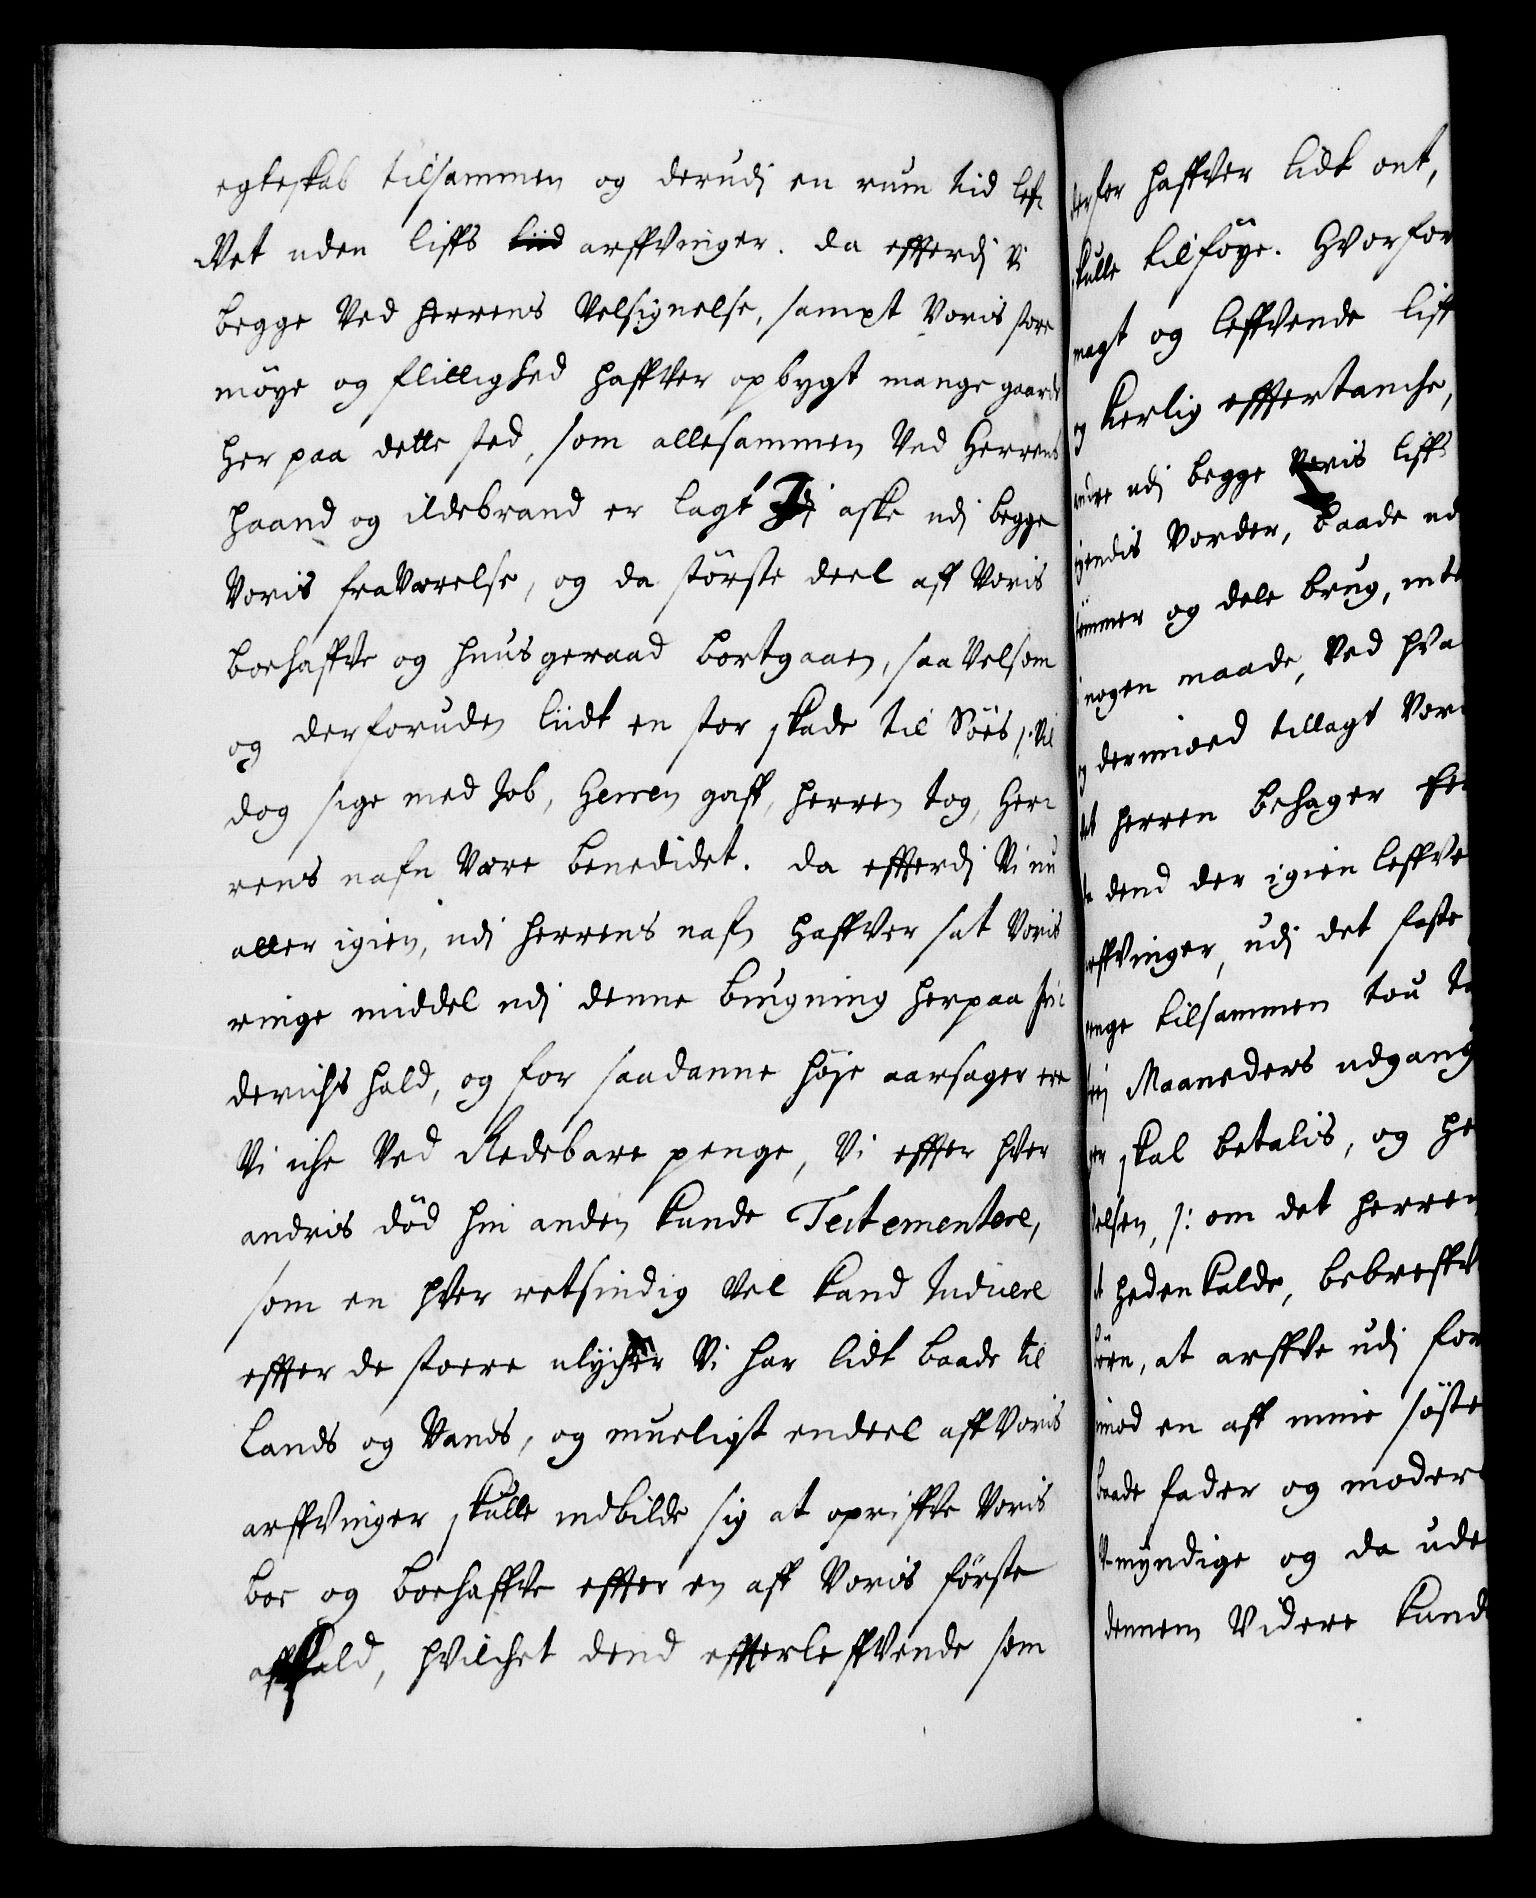 egteskab tilsammen og derudj en rum tid lef-
Vet uden liffs liid arffvinger. da effterdj Vi
begge Ved Herrens Velsignelse, sampt Voris store
möye og flillighed haffver opbygt mange gaarde
her paa dette sted, som allesammen Ved Herrens
haand og ildebrand er lagt I aske udj begge
Voris fraVærelse, og da störste deel aff Voris
boehaffve og huusgeraad bortgaaen, saaVelsom
og derforuden liidt en stor skade til Söes /: Vil
dog sige med Job, Herren gaff, herren tog, Her-
rens nafn Være benedidet. da effterdj Vi nu
aller igien, udj herrens nafn haffver sat Voris
ringe middel udj denne bugning herpaa fri-
derichs hald, og for saadanne höje aarsager ere
Vi iche Ved Redebare penge, Vi effter hver
andris död hin anden kunde Testementere,
som en hver retsindig Vel kand Judicere
effter de stoere ulycher Vi har lidt baade til
Lands og Vands, og mueligt endeel aff Voris
arffvinger skulle indbilde sig at opriffve Voris
boe og boehaffve effter en aff Voris förste
affald, hvilchet dend effterleffvende som
derfor haffver lidt ont,
skulle tilföye. Hvorfor
magt og leffvende liff
og kerlig efftertanche,
udj begge Voris liff
Vorder, baade ud
og dele brug, inte
nogen maade, Ved hva
og dermed tillagt Vor
det herren behager
da dend der igien leffve
arffvinger, udj det faste
penge tilsammen tou
trej Maaneders udgang
skal betalis, og he
/: om det herren
hedenkalde, bebreffv
börn, at arffve udj for
imod en aff mine söste
baade fader og moder
myndige og da ude
dennem Videre kund